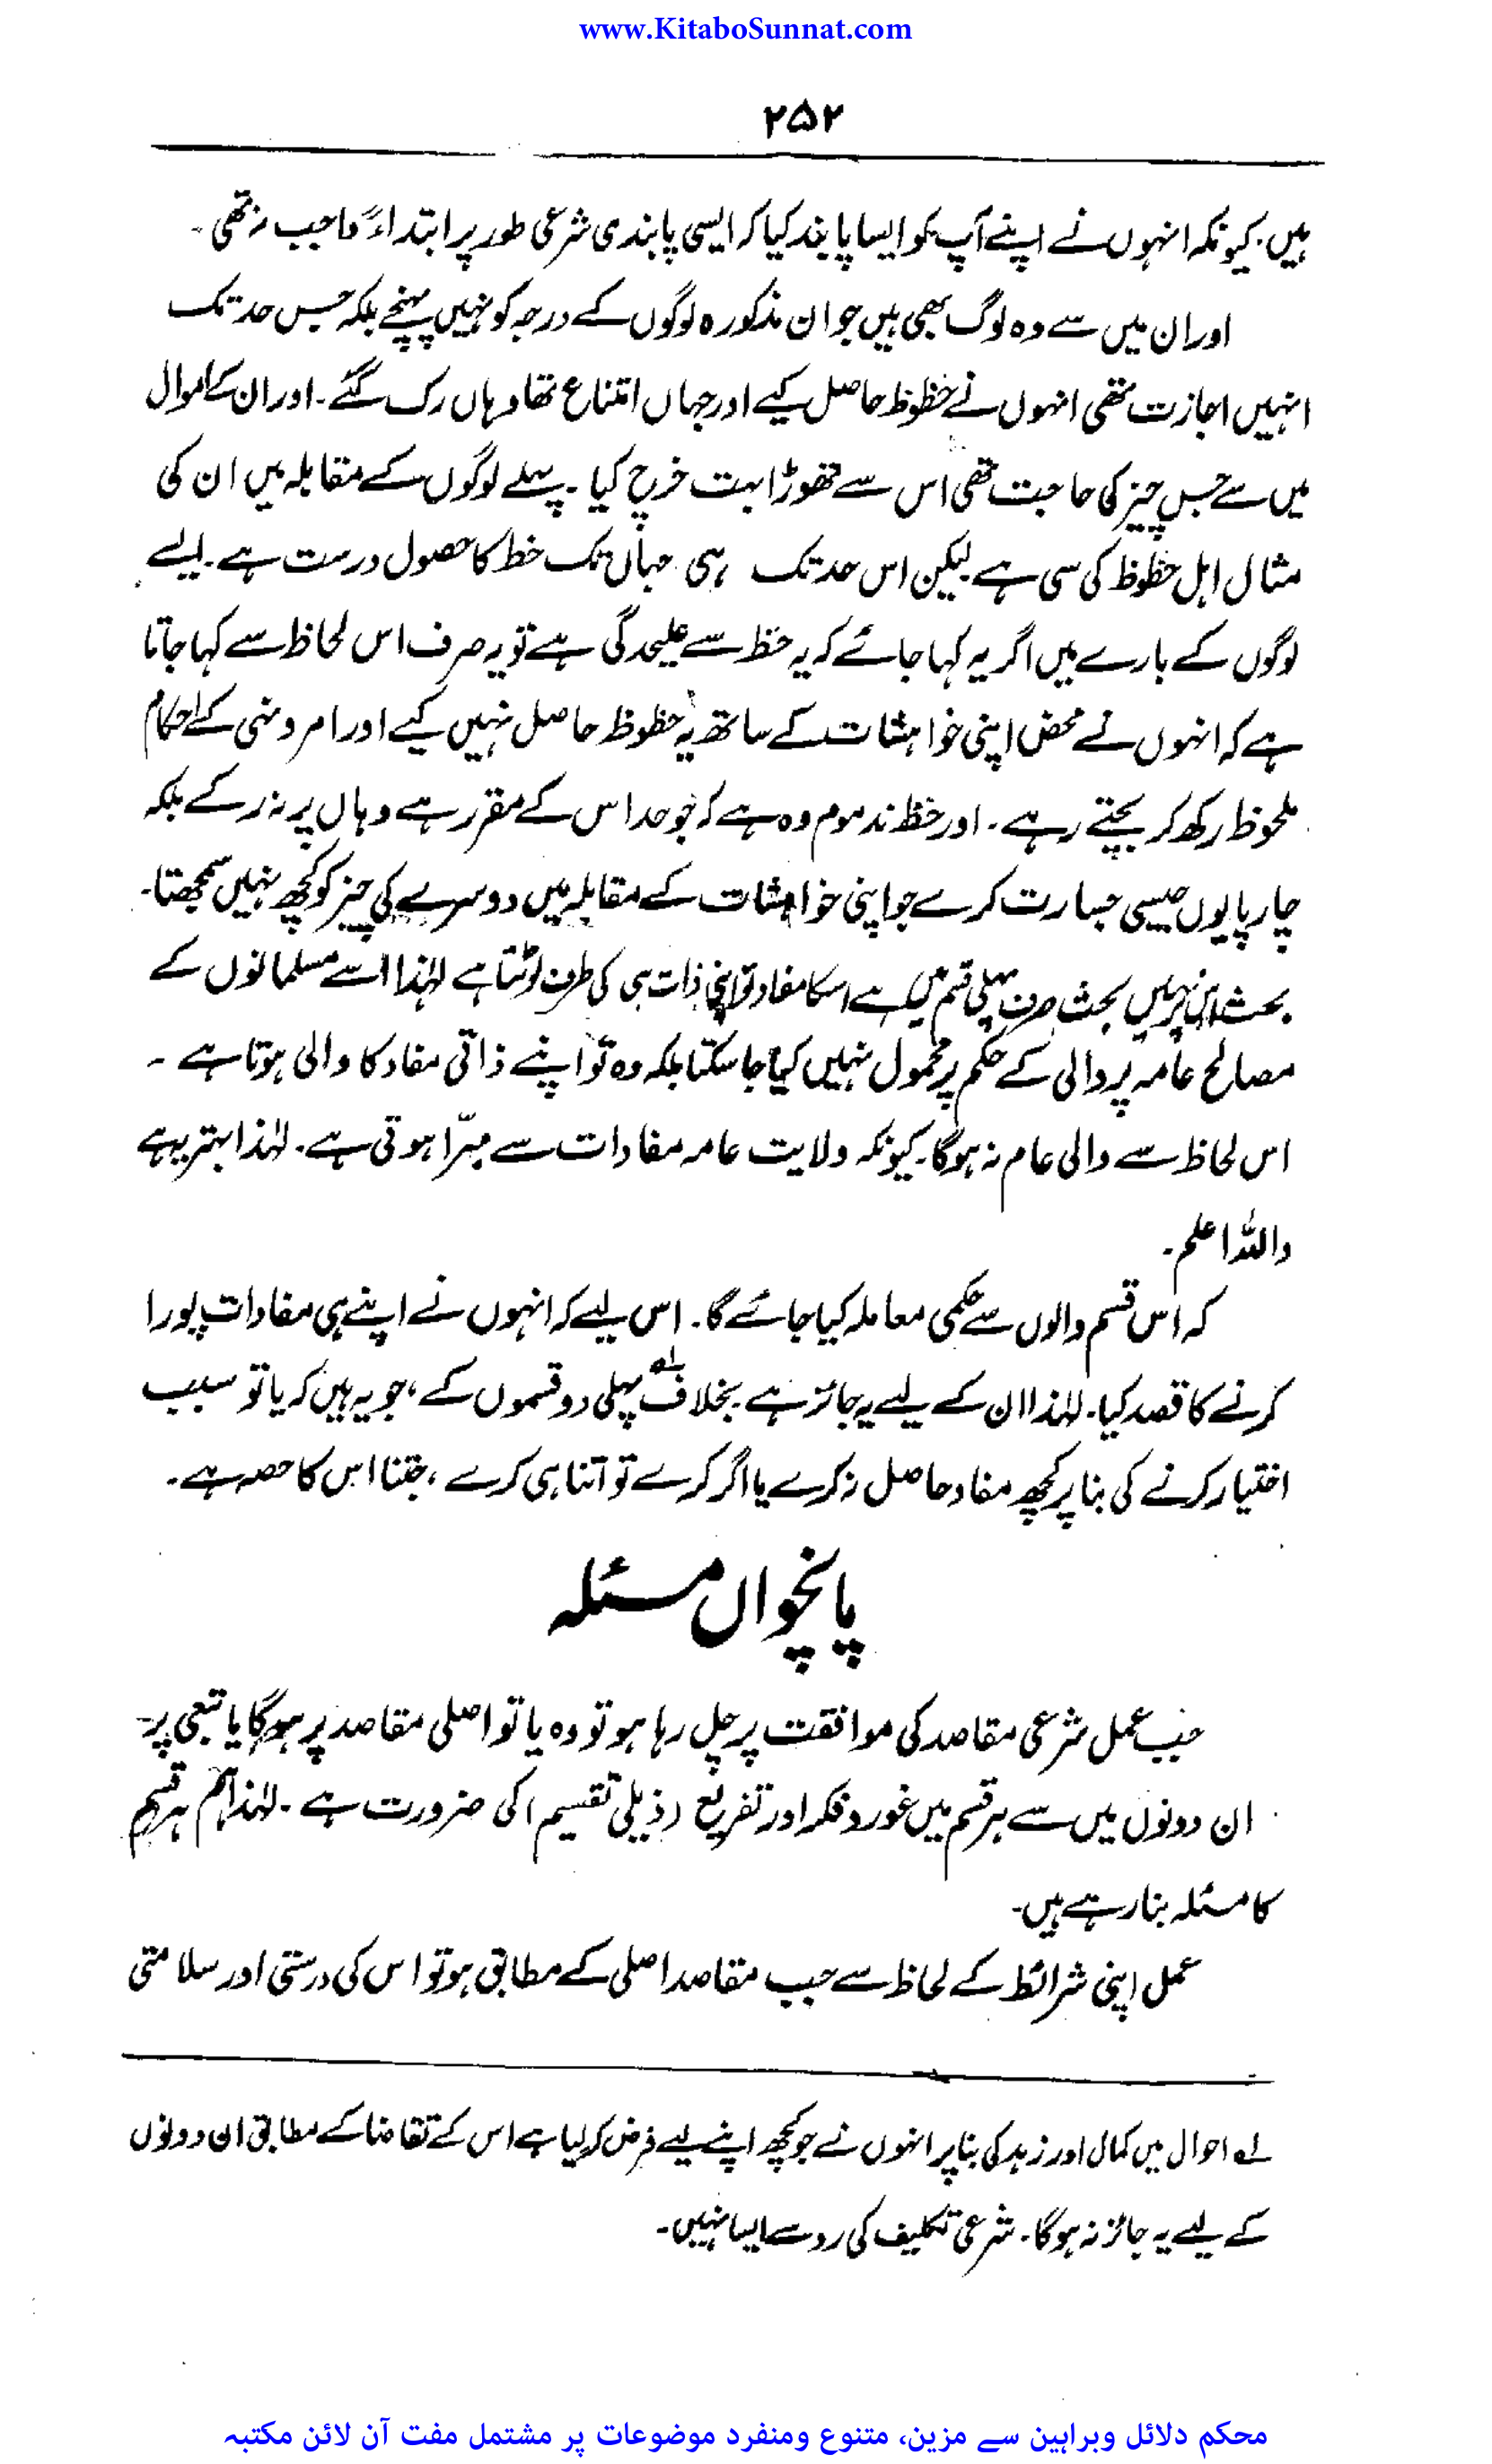 www.KitaboSunnat.com
۲۵۲
ہیں۔ کیونکہ انہوں نے اپنے آپ کو ایسا پابند کیا کہ ایسی پابندی شرعی طور پر ابتداءً واجب نہ تھی۔
اور ان میں سے وہ لوگ بھی ہیں جو ان مذکورہ لوگوں کے درجہ کو نہیں پہنچے بلکہ جس حد تک
انہیں اجازت تھی انہوں نے حظوظ حاصل کیے اور جہاں امتناع تھا وہاں رک گئے۔ اور ان کے اموال
میں سے جس چیز کی حاجت تھی اس سے تھوڑا بہت خرچ کیا۔ پہلے لوگوں کے مقابلہ میں ان کی
مثال اہل حظوظ کی سی ہے لیکن اس حد تک ہی جہاں تک حظ کا حصول درست ہے۔ ایسے
لوگوں کے بارے میں اگر یہ کہا جائے کہ یہ حظ سے علیحدگی ہے تو یہ صرف اس لحاظ سے کہا جاتا
ہے کہ انہوں نے محض اپنی خواہشات کے ساتھ یہ حظوظ حاصل نہیں کیے اور امر و نہی کے احکام
ملحوظ رکھ کر بچتے رہے۔ اور حظ مذموم وہ ہے کہ جو حد اس کے مقرر ہے وہاں پر نہ رکے بلکہ
چارپایوں جیسی جسارت کرے جو اپنی خواہشات کے مقابلہ میں دوسرے کی چیز کو کچھ نہیں سمجھتا۔
بحث اس میں نہیں بحث صرف پہلی قسم میں ہے اسکا مفاد تو اپنی ذات ہی کی طرف لوٹتا ہے لہٰذا اسے مسلمانوں کے
مصالح عامہ پر والی کے حکم پر محمول نہیں کیا جا سکتا بلکہ وہ تو اپنے ذاتی مفاد کا والی ہوتا ہے ۔
اس لحاظ سے والی عام نہ ہوگا۔ کیونکہ ولایت عامہ مفادات سے مبرّا ہوتی ہے۔ لہٰذا بہتر یہ ہے
واللہ اعلم۔
کہ اس قسم والوں سے حکمی معاملہ کیا جائے گا۔ اس لیے کہ انہوں نے اپنے ہی مفادات پورا
کرنے کا قصد کیا۔ لہٰذا ان کے لیے یہ جائز ہے بخلاف لہ پہلی دو قسموں کے، جو یہ ہیں کہ یا تو سبب
اختیار کرنے کی بنا پر کچھ مفاد حاصل نہ کرے یا اگر کرے تو اتنا ہی کرے، جتنا اس کا حصہ ہے۔
پانچواں مسئلہ
جب عمل شرعی مقاصد کی موافقت پر چل رہا ہو تو وہ یا تو اصلی مقاصد پر ہوگا یا تبعی پر۔
ان دونوں میں سے ہر قسم میں غور و فکر اور تفریع (ذیلی تقسیم) کی ضرورت ہے۔ لہٰذا ہم ہر قسم
کا مسئلہ بنا رہے ہیں۔
عمل اپنی شرائط کے لحاظ سے جب مقاصد اصلی کے مطابق ہو تو اس کی درستی اور سلامتی
لہ احوال میں کمال اور زہد کی بنا پر انہوں نے جو کچھ اپنے لیے فرض کر لیا ہے اس کے تقاضا کے مطابق ان دونوں
کے لیے یہ جائز نہ ہوگا۔ شرعی تکلیف کی رو سے ایسا نہیں۔
محکم دلائل وبراہین سے مزین، متنوع ومنفرد موضوعات پر مشتمل مفت آن لائن مکتبہ